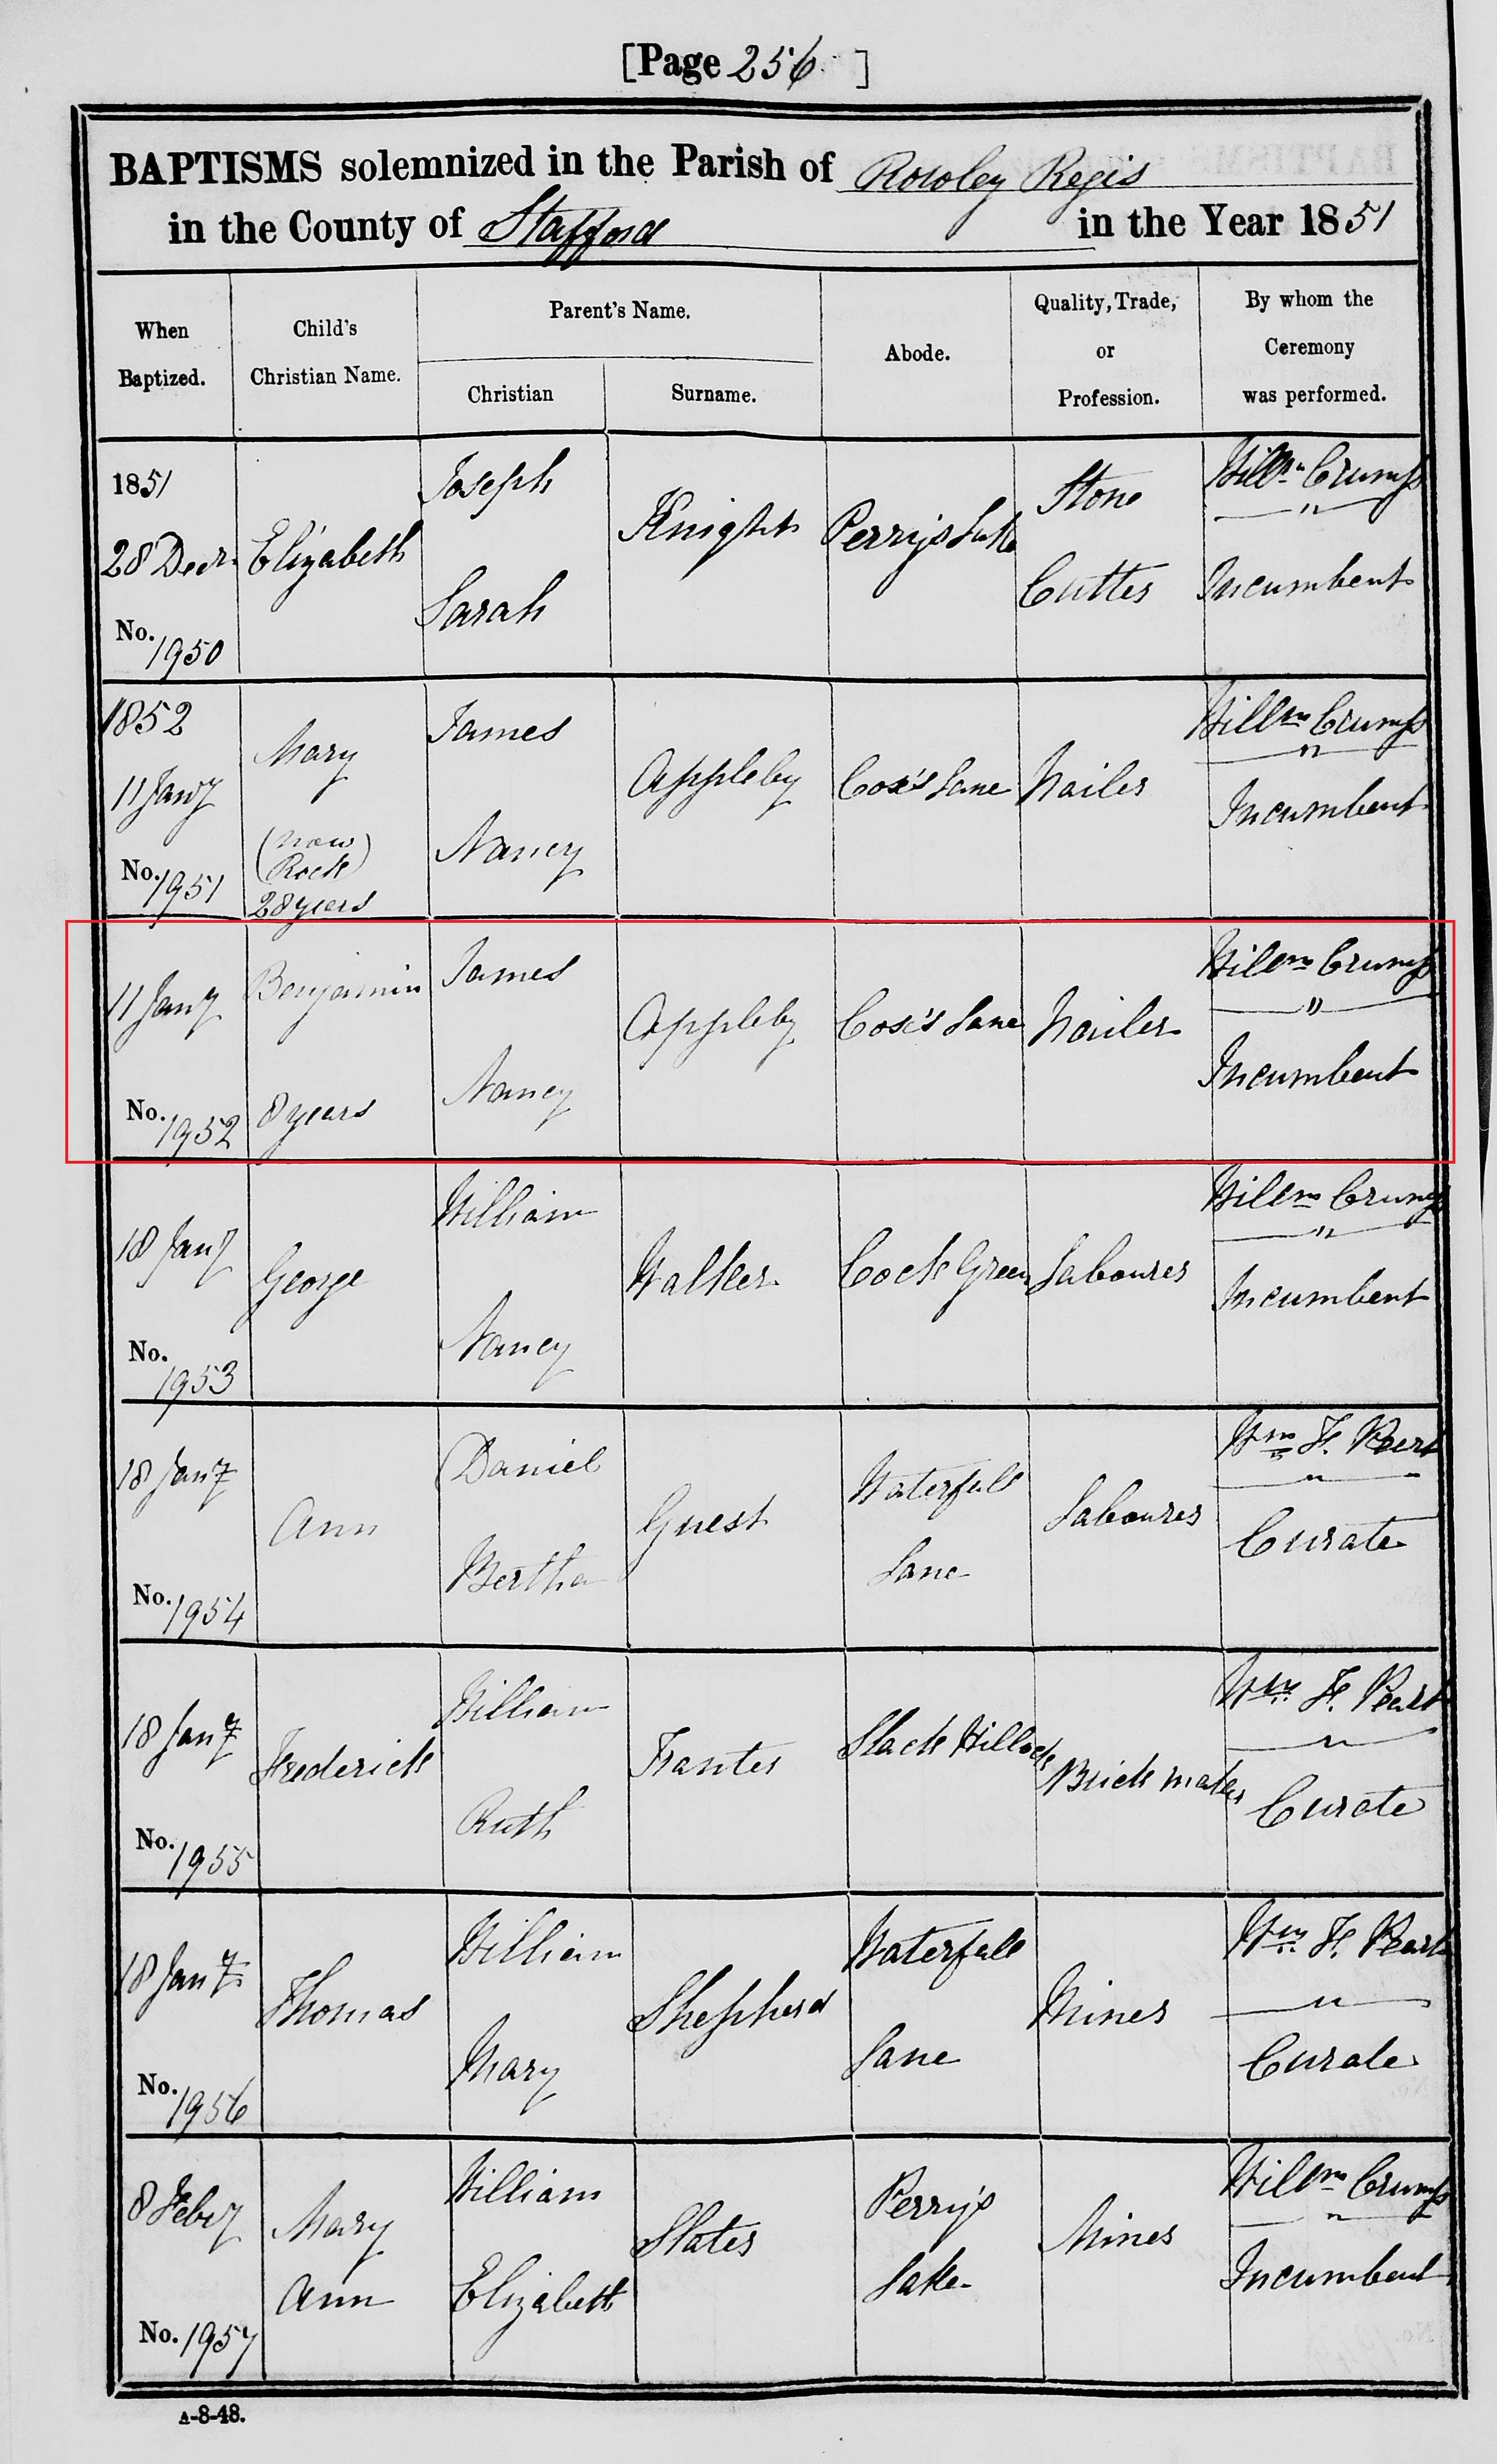 [Page 256 ]
BAPTISMS solemnized in the Parish of Rowley Regis
in the County of Stafford in the Year 1851
When Baptized. Child's Christian Name. Parent's Name. Christian Surname. Abode. Quality, Trade, or Profession. By whom the Ceremony was performed.
1851
28 Decr. Elizabeth Joseph Sarah Knight Perry's Lake Stone Cutter Willm Crump Incumbent
No. 1950
1852
11 Jany Mary (now Rock) 28 years James Nancy Appleby Cox's Lane Nailer Willm Crump Incumbent
No. 1951
11 Jany Benjamin 8 years James Nancy Appleby Cox's Lane Nailer Willm Crump Incumbent
No. 1952
18 Jany George William Nancy Walker Cock Green Labourer Willm Crump Incumbent
No. 1953
18 Jany Ann Daniel Bertha Guest Waterfall Lane Labourer Wm F. Curate
No. 1954
18 Jany Frederick William Ruth Slack Hillock Brick maker Wm F. Curate
No. 1955
18 Jany Thomas William Mary Shepherd Waterfall Lane Miner Wm F. Curate
No. 1956
8 Feby Mary Ann William Elizabeth Slater Perry's Lake Miner Willm Crump Incumbent
No. 1957
A-8-48.